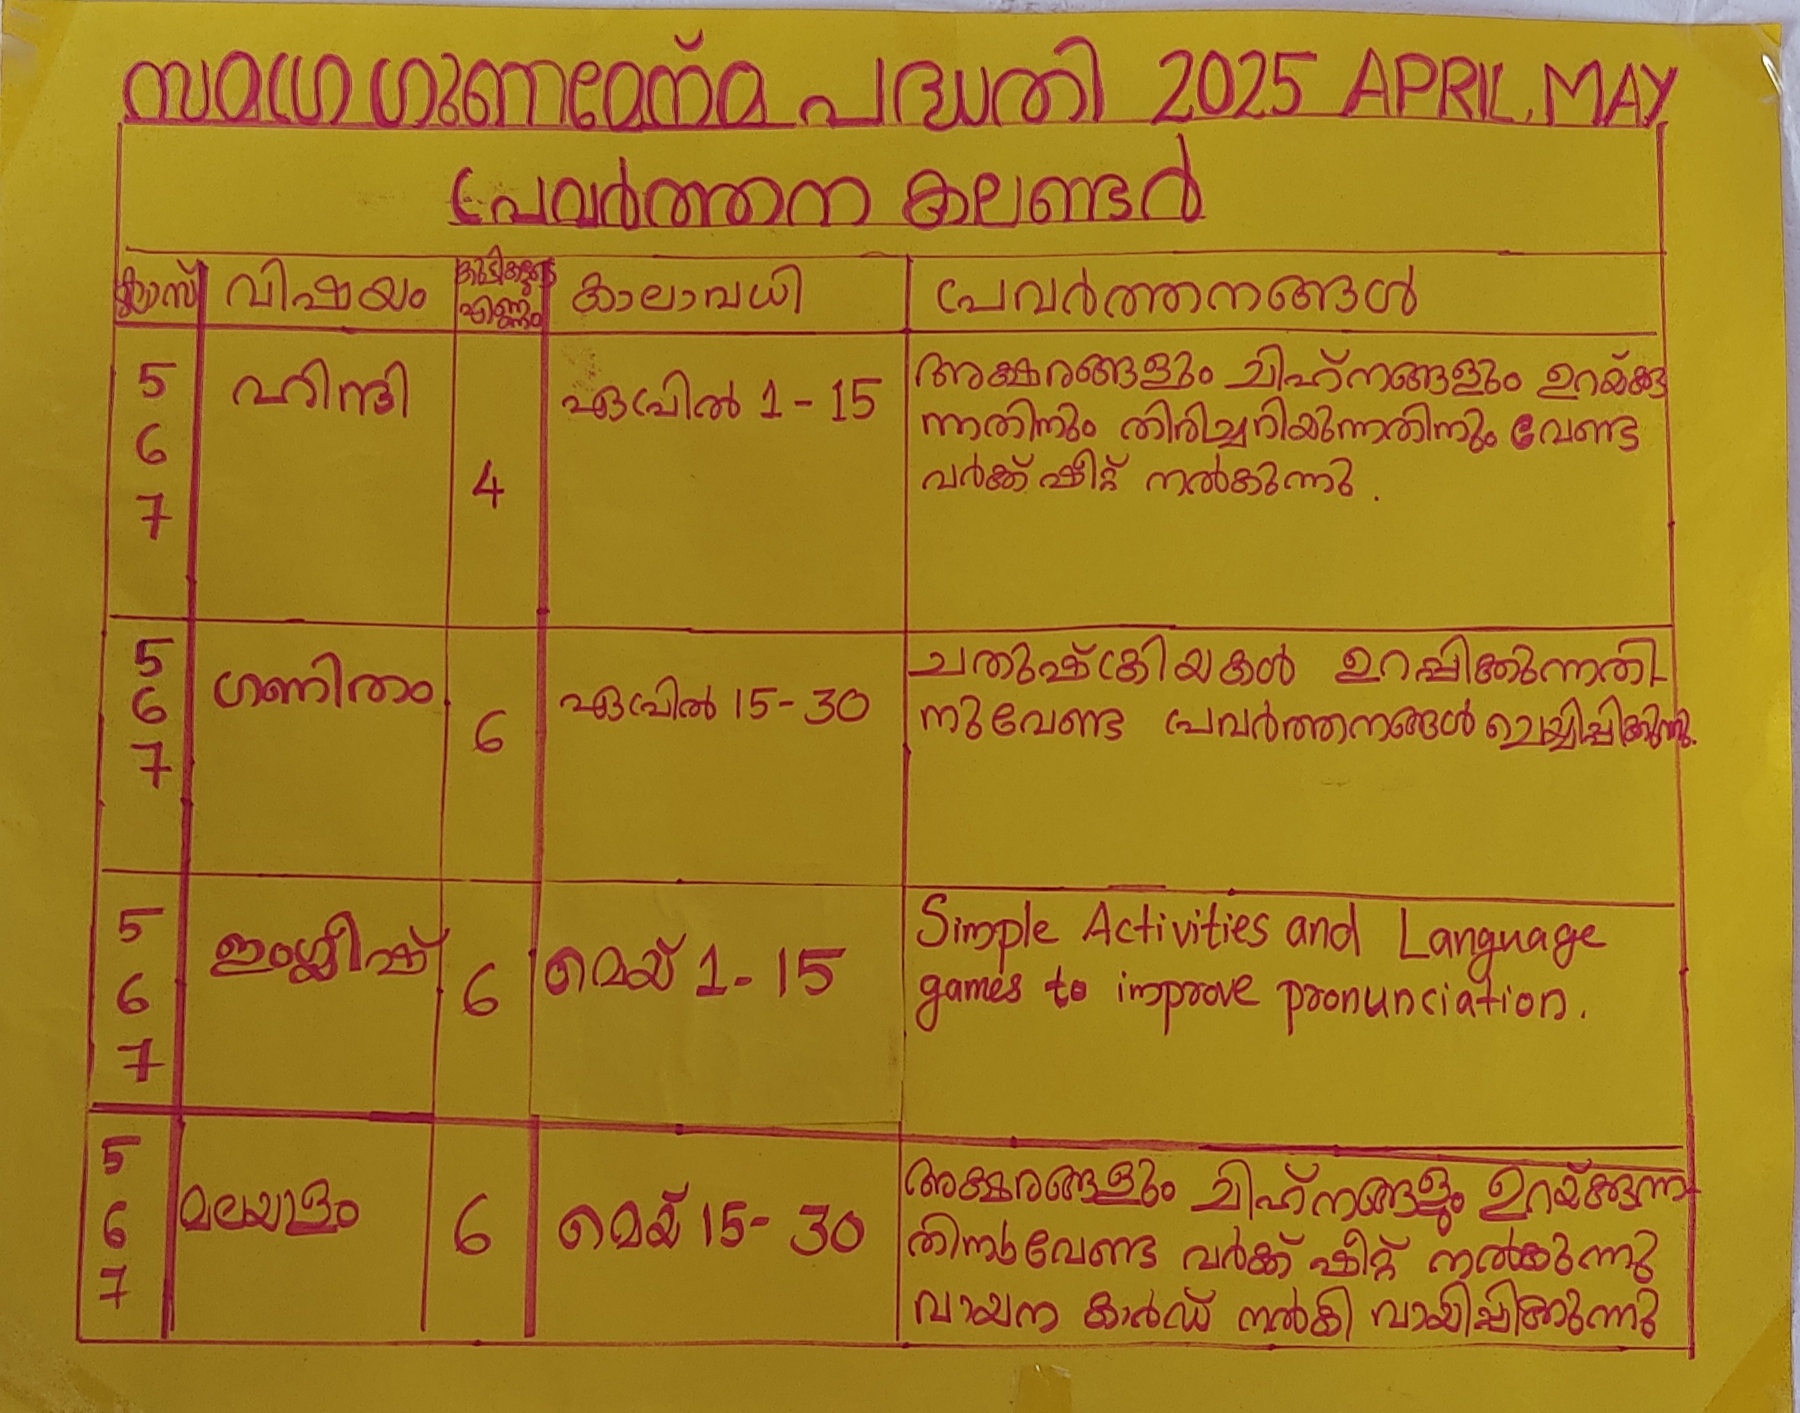 സമഗ്ര ഗുണമേന്മ പദ്ധതി 2025 APRIL, MAY
പ്രവർത്തന കലണ്ടർ
ക്ലാസ് വിഷയം കുട്ടികളുടെ എണ്ണം കാലാവധി പ്രവർത്തനങ്ങൾ
5
6
7
ഹിന്ദി
4
ഏപ്രിൽ 1 - 15
അക്ഷരങ്ങളും ചിഹ്നങ്ങളും ഉറയ്ക്കു
ന്നതിനും തിരിച്ചറിയുന്നതിനും വേണ്ട
വർക്ക് ഷീറ്റ് നൽകുന്നു.
5
6
7
ഗണിതം
6
ഏപ്രിൽ 15 - 30
ചതുഷ്ക്രിയകൾ ഉറപ്പിക്കുന്നതി-
നുവേണ്ട പ്രവർത്തനങ്ങൾ ചെയ്യിപ്പിക്കുന്നു.
5
6
7
ഇംഗ്ലീഷ്
6
മെയ് 1 - 15
Simple Activities and Language
games to improve pronunciation.
5
6
7
മലയാളം
6
മെയ് 15 - 30
അക്ഷരങ്ങളും ചിഹ്നങ്ങളും ഉറയ്ക്കുന്ന-
തിനുവേണ്ട വർക്ക് ഷീറ്റ് നൽകുന്നു
വായന കാർഡ് നൽകി വായിപ്പിക്കുന്നു